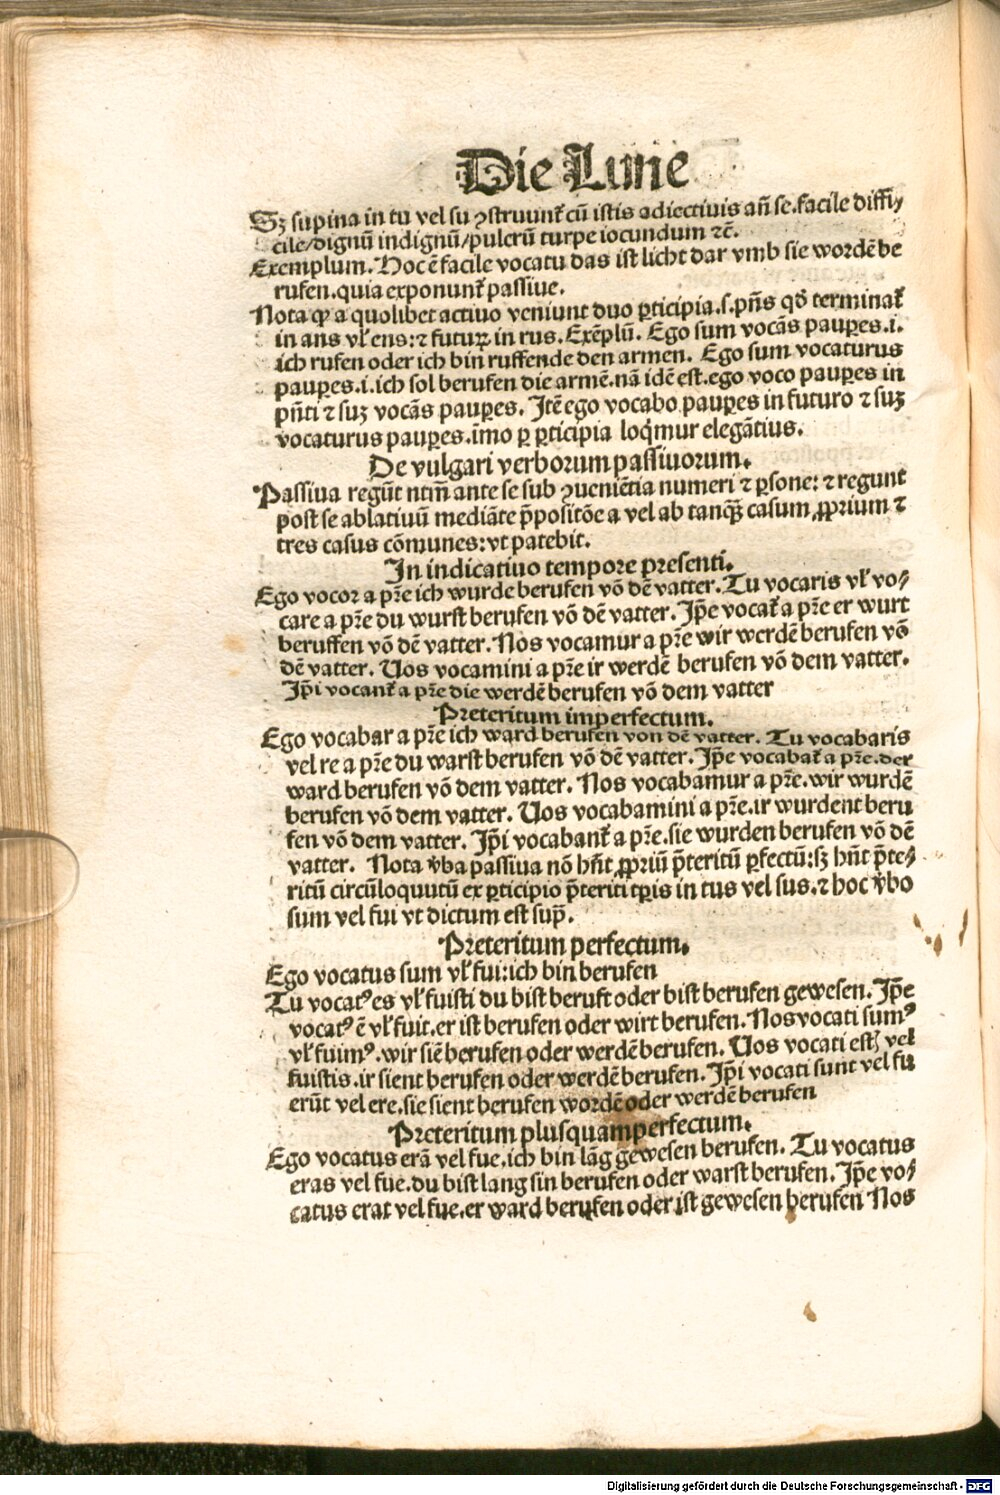 Die Lune
Sꝫ supina in tu vel su ꝯstruunt᷑ cū istis adiectiuis añ se.facile diffi⸗
cile/dignū indignū/pulcrū turpe iocundum ⁊c̄.
Exemplum. Hoc ē facile vocatu das ist licht dar vmb sie wordē be
rufen.quia exponunt᷑ passiue.
Nota ꝙ a quolibet actiuo veniunt duo ꝑticipia.s.pn̄s qd̄ terminat᷑
in ans vl̓ ens:⁊ futuꝝ in rus. Exēplū. Ego sum vocās pauꝑes.i.
ich rufen oder ich bin ruffende den armen. Ego sum vocaturus
pauꝑes.i.ich sol berufen die armē.nā idē est.ego voco pauꝑes in
pn̄ti ⁊ suꝫ vocās pauꝑes. Itē ego vocabo pauꝑes in futuro ⁊ suꝫ
vocaturus pauꝑes.imo ꝑ ꝑticipia loqͥmur elegātius.
De vulgari verborum passiuorum.
Passiua regūt ntm̄ ante se sub ꝯueniētia numeri ⁊ ꝑsone: ⁊ regunt
post se ablatiuū mediāte p̄positōe a vel ab tanqꝫ casum ꝓprium ⁊
tres casus cōmunes:vt patebit.
In indicatiuo tempore presenti.
Ego vocor a pr̄e ich wurde berufen vō dē vatter. Tu vocaris vl̓ vo⸗
care a pr̄e du wurst berufen vō dē vatter. Ip̄e vocat᷑ a pr̄e er wurt
beruffen vō dē vatter. Nos vocamur a pr̄e wir werdē berufen vō
dē vatter. Uos vocamini a pr̄e ir werdē berufen vō dem vatter.
Ip̄i vocant᷑ a pr̄e die werdē berufen vō dem vatter
Preteritum imperfectum.
Ego vocabar a pr̄e ich ward berufen von dē vatter. Tu vocabaris
vel re a pr̄e du warst berufen vō dē vatter. Ip̄e vocabat᷑ a pr̄e.der
ward berufen vō dem vatter. Nos vocabamur a pr̄e.wir wurdē
berufen vō dem vatter. Uos vocabamini a pr̄e.ir wurdent beru
fen vō dem vatter. Ip̄i vocabant᷑ a pr̄e.sie wurden berufen vō dē
vatter. Nota v̓ba passiua nō hn̄t ꝓpriū p̄teritū ꝑfectū:sꝫ hn̄t p̄te⸗
ritū circūloquutū ex ꝑticipio p̄teriti tꝑis in tus vel sus.⁊ hoc v̓bo
sum vel fui vt dictum est sup̄.
Preteritum perfectum.
Ego vocatus sum vl̓ fui:ich bin berufen
Tu vocatꝰ es vl̓ fuisti du bist beruft oder bist berufen gewesen. Ip̄e
vocatꝰ ē vl̓ fuit.er ist berufen oder wirt berufen. Nos vocati sumꝰ
vl̓ fuimꝰ.wir siē berufen oder werdē berufen. Uos vocati estꝭ vel
fuistis.ir sient berufen oder werdē berufen. Ip̄i vocati sunt vel fu
erūt vel ere.sie sient berufen wordē oder werdē berufen
Preteritum plusquamperfectum.
Ego vocatus erā vel fue.ich bin lāg gewesen berufen. Tu vocatus
eras vel fue.du bist lang sin berufen oder warst berufen. Ip̄e vo⸗
catus erat vel fue.er ward berufen oder ist gewesen berufen Nos
Digitalisierung gefördert durch die Deutsche Forschungsgemeinschaft - DFG